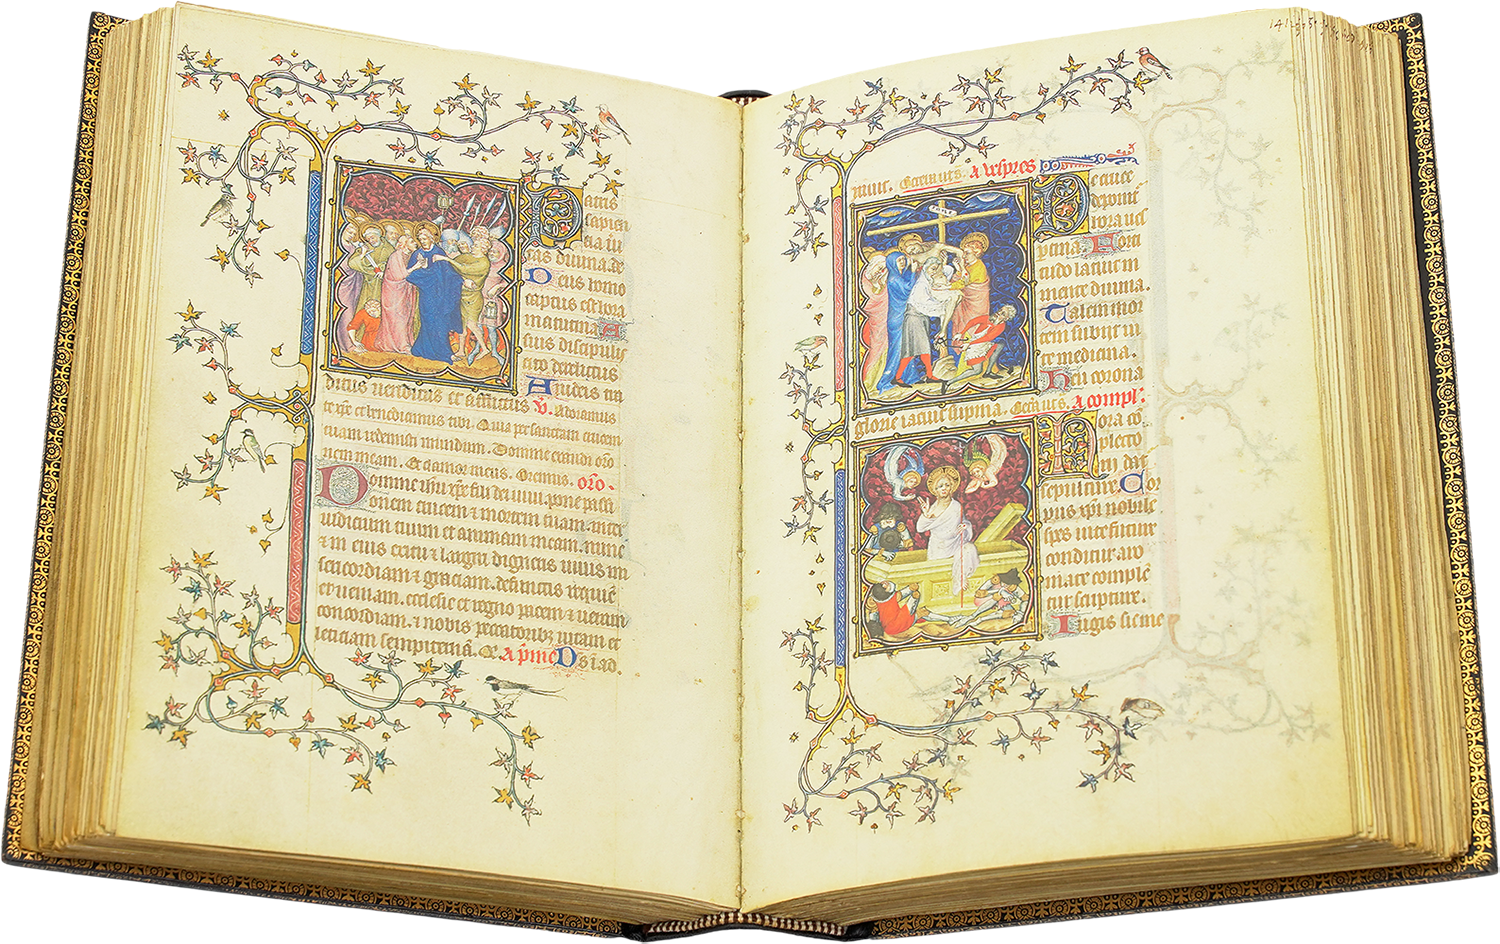 Patris
sapien
cia
tas diuina.
Deus homo
captus est hora
matutina A
suis discipulis
cito derelictus
A iudeis
ditus uenditus et afflictus V. Adoramus
te xpe et benedicimus tibi. Quia per sanctam crucem
tuam redemisti mundum. Domine exaudi oro
nem meam. Et clamor meus. Oremus. oro.
Domine ihu xpe fili dei uiui. pone passi
onem crucem et mortem tuam. inter
iudicium tuum et animam meam. nunc
& in
sericordiam & graciam. defunctis requie
et ueniam. ecclesie et regno pacem & ueram
concordiam. & nobis peccatoribus uitam et
leticiam sempiternam. A prime Ds i ad
A vespres
De cruce
deponit
hora ues
pertina Forti
tudo latuit in
mente diuina.
Talem mor
tem subiit ui
te medicina.
Heu corona
glorie iacuit supina. A compl
Hora co
pleto
rii dat
sepulture. Cor
pus xpi nobile
spes uite future
conditur aro
mate comple
tur scripture.
Iugis sit me